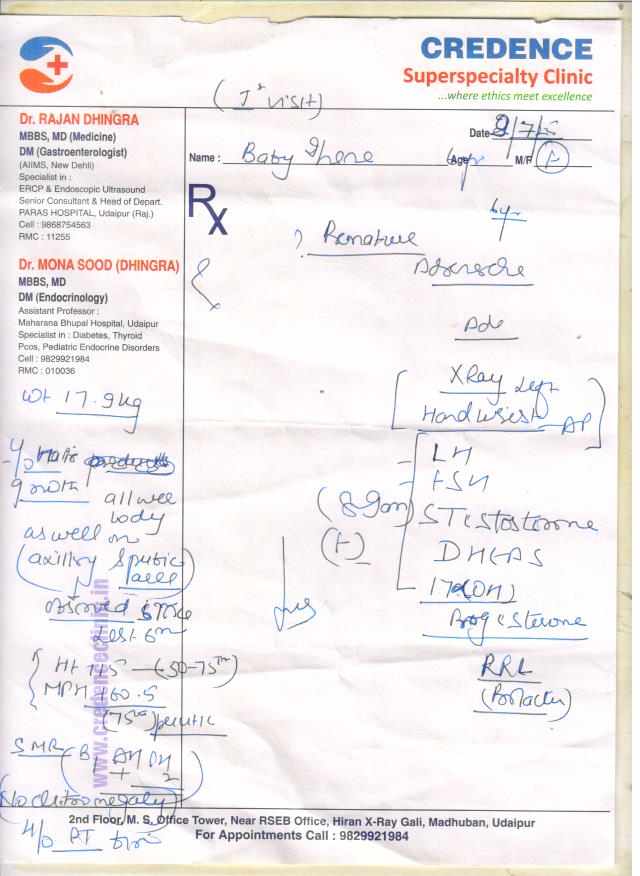 CREDENCE
Superspecialty Clinic
...where ethics meet excellence
(Ist visit)
Dr. RAJAN DHINGRA
MBBS, MD (Medicine)
DM (Gastroenterologist)
(AIIMS, New Dehli)
Specialist in :
ERCP & Endoscopic Ultrasound
Senior Consultant & Head of Depart.
PARAS HOSPITAL, Udaipur (Raj.)
Cell : 9868754563
RMC : 11255
Dr. MONA SOOD (DHINGRA)
MBBS, MD
DM (Endocrinology)
Assistant Professor :
Maharana Bhupal Hospital, Udaipur
Specialist in : Diabetes, Thyroid
Pcos, Pediatric Endocrine Disorders
Cell : 9829921984
RMC : 010036
Date
Name : Baby
Age 6yr M/F F
Rx
6yr
? Premature
Adrenarche
Adv
XRay Left
Hand Wrist AP
LH
FSH
(8-9am) S Testosterone
(F)
DHEAS
17(OH)
Progesterone
RRL
Wt 17.9kg
growth all over
body
as well on
(axillary & pubic
area)
observed since
Last 6m
Ht 115 (50-75th)
MPH 160.5
(75th)
SMR
(No clitoromegaly)
www.credenceclinic.in
2nd Floor, M. S. Office Tower, Near RSEB Office, Hiran X-Ray Gali, Madhuban, Udaipur
For Appointments Call : 9829921984